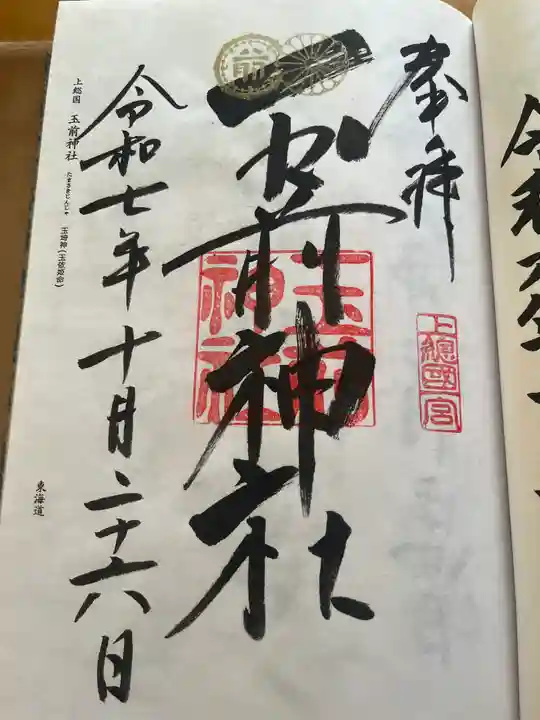 奉拝
上總國一宮
玉前神社
前
玉前神社
令和七年十月二十六日
上総国 玉前神社 たまさきじんじゃ 玉埼神(玉依姫命)
東海道